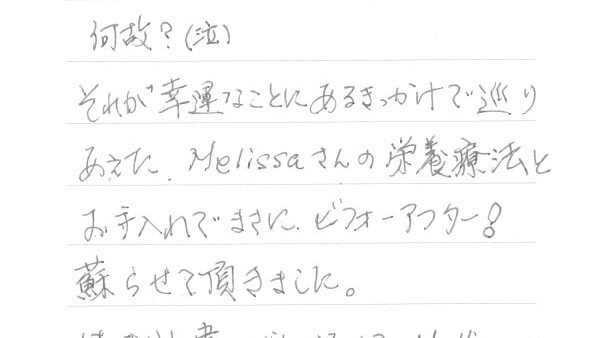 何故?(泣)
それが幸運なことにあるきっかけで巡り
あえた、Melissaさんの栄養療法と
お手入れでまさに、ビフォーアフター!
蘇らせて頂きました。